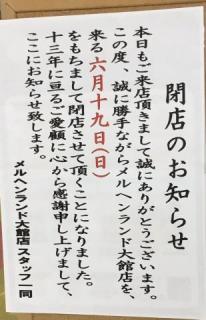 閉店のお知らせ
本日もご来店頂きまして誠にありがとうございます。
この度、誠に勝手ながらメルヘンランド大館店を、
来る六月十九日(日)
をもちまして閉店させて頂くことになりました。
十三年に亘るご愛顧に心から感謝申し上げまして、
ここにお知らせ致します。
メルヘンランド大館店 スタッフ一同